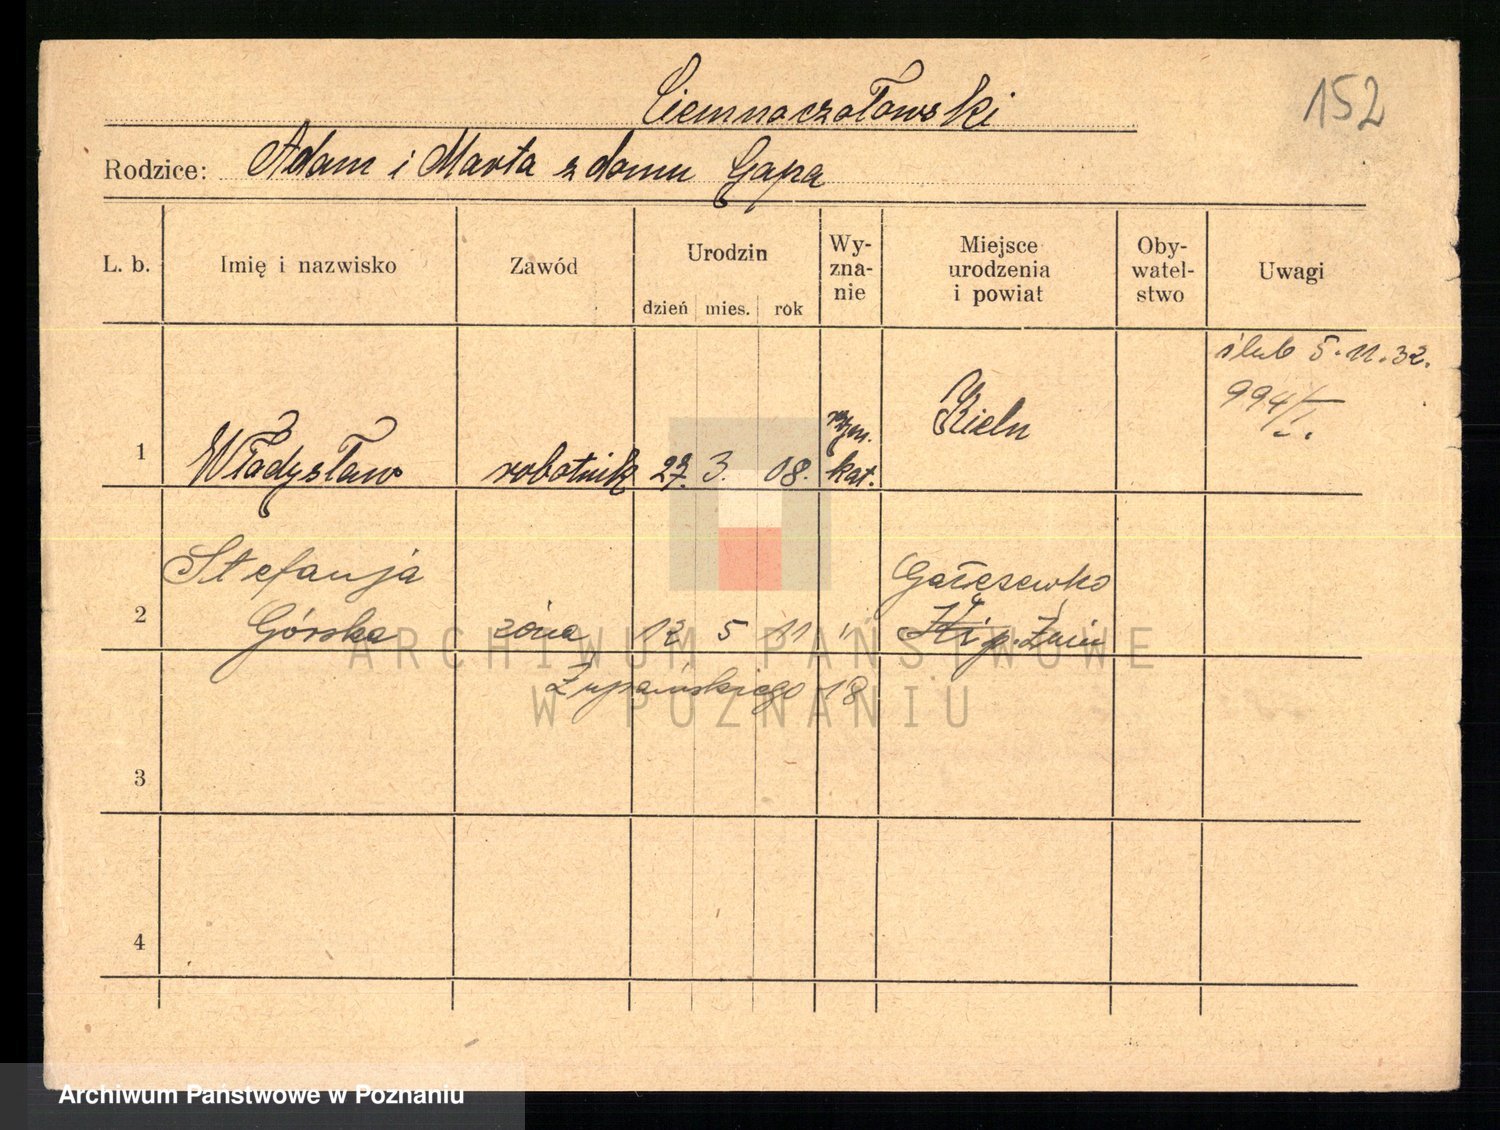 152
Ciemnoczołowski
Rodzice: Adam i Marta z domu Gapa
L. b.
Imię i nazwisko
Zawód
Urodzin
dzień mies. rok
Wy-
zna-
nie
Miejsce
urodzenia
i powiat
Oby-
watel-
stwo
Uwagi
1
Władysław
robotnik
27. 3. 08.
rzym.
kat.
Kieln
ślub 5.11.32.
994/I.
2
Stefanja
Górska
żona
12 5 11
"
Gałęzewko
p. Żnin
Żupańskiego 18
3
4
ARCHIWUM PAŃSTWOWE
W POZNANIU
Archiwum Państwowe w Poznaniu